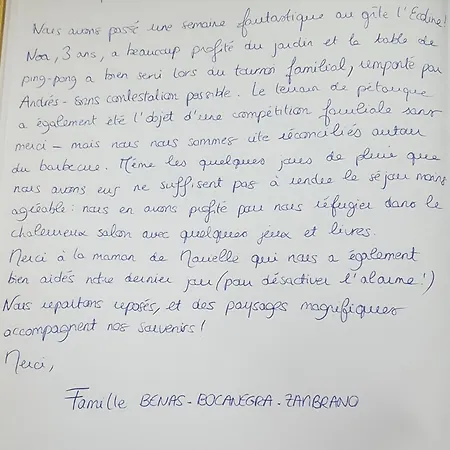 Nous avons passé une semaine fantastique au gîte l'Ecoline!
Noa, 3 ans, a beaucoup profité du jardin et la table de
ping-pong a bien servi lors du tournoi familial, remporté par
Andrés - sans contestation possible. Le terrain de pétanque
a également été l'objet d'une compétition familiale sans
merci - mais nous nous sommes vite réconciliés autour
du barbecue. Même les quelques jours de pluie que
nous avons eus ne suffisent pas à rendre le séjour moins
agréable: nous en avons profité pour nous réfugier dans le
chaleureux salon avec quelques jeux et livres.
Merci à la maman de Mauelle qui nous a également
bien aidés notre dernier jour (pour désactiver l'alarme!)
Nous repartons reposés, et des paysages magnifiques
accompagnent nos souvenirs!
Merci,
Famille BENAS - BOCANEGRA - ZAMBRANO